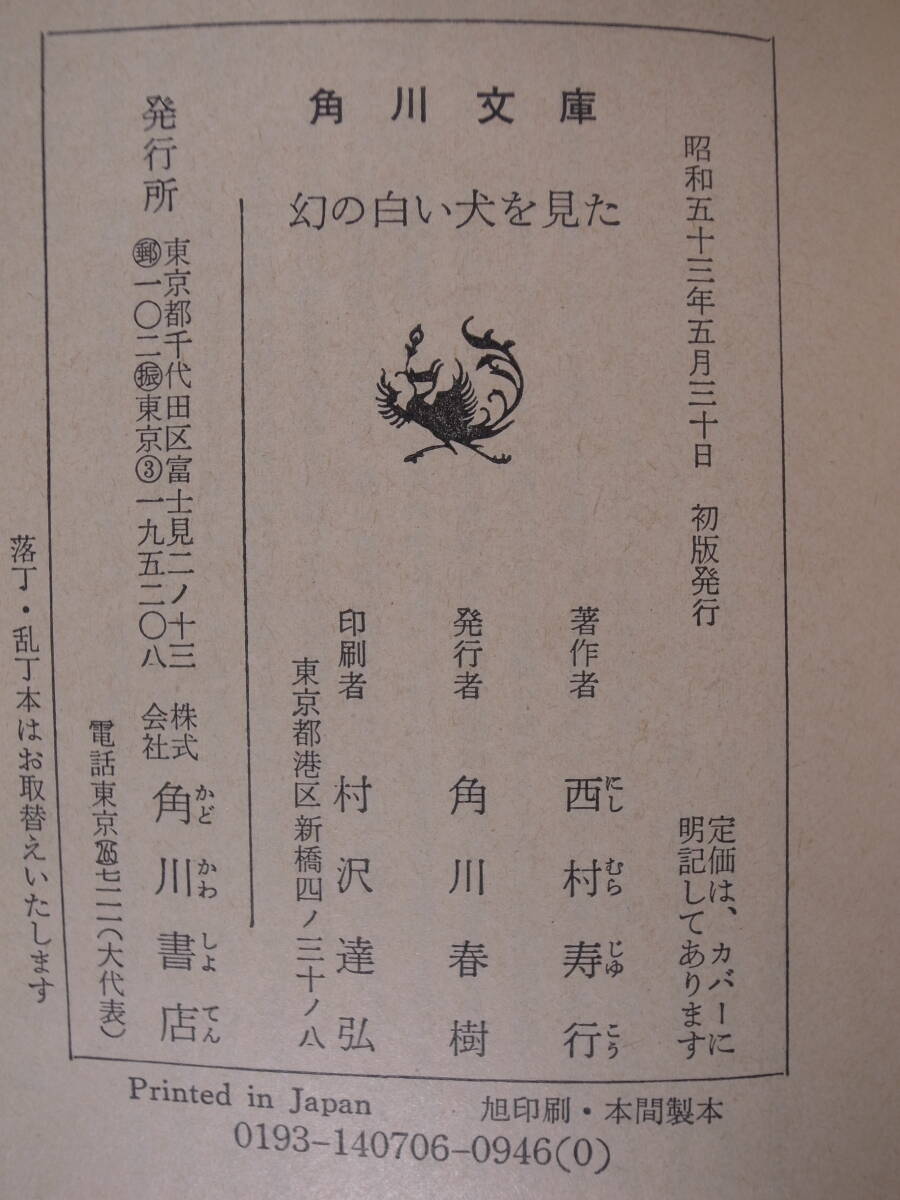 角川文庫
幻の白い犬を見た
昭和五十三年五月三十日 初版発行
定価は、カバーに
明記してあります
著作者 西村寿行
にしむらじゅこう
発行者 角川春樹
印刷者 村沢達弘
東京都港区新橋四ノ三十ノ八
発行所
東京都千代田区富士見二ノ十三
㊩一〇二㊩東京③一九五二〇八
株式
会社
角川書店
かどかわしよてん
電話東京265七一一一(大代表)
落丁・乱丁本はお取替えいたします
Printed in Japan 旭印刷・本間製本
0193-140706-0946(0)